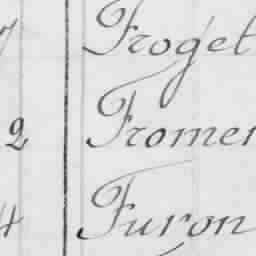 7 Froget
2 Fromen
4 Furon